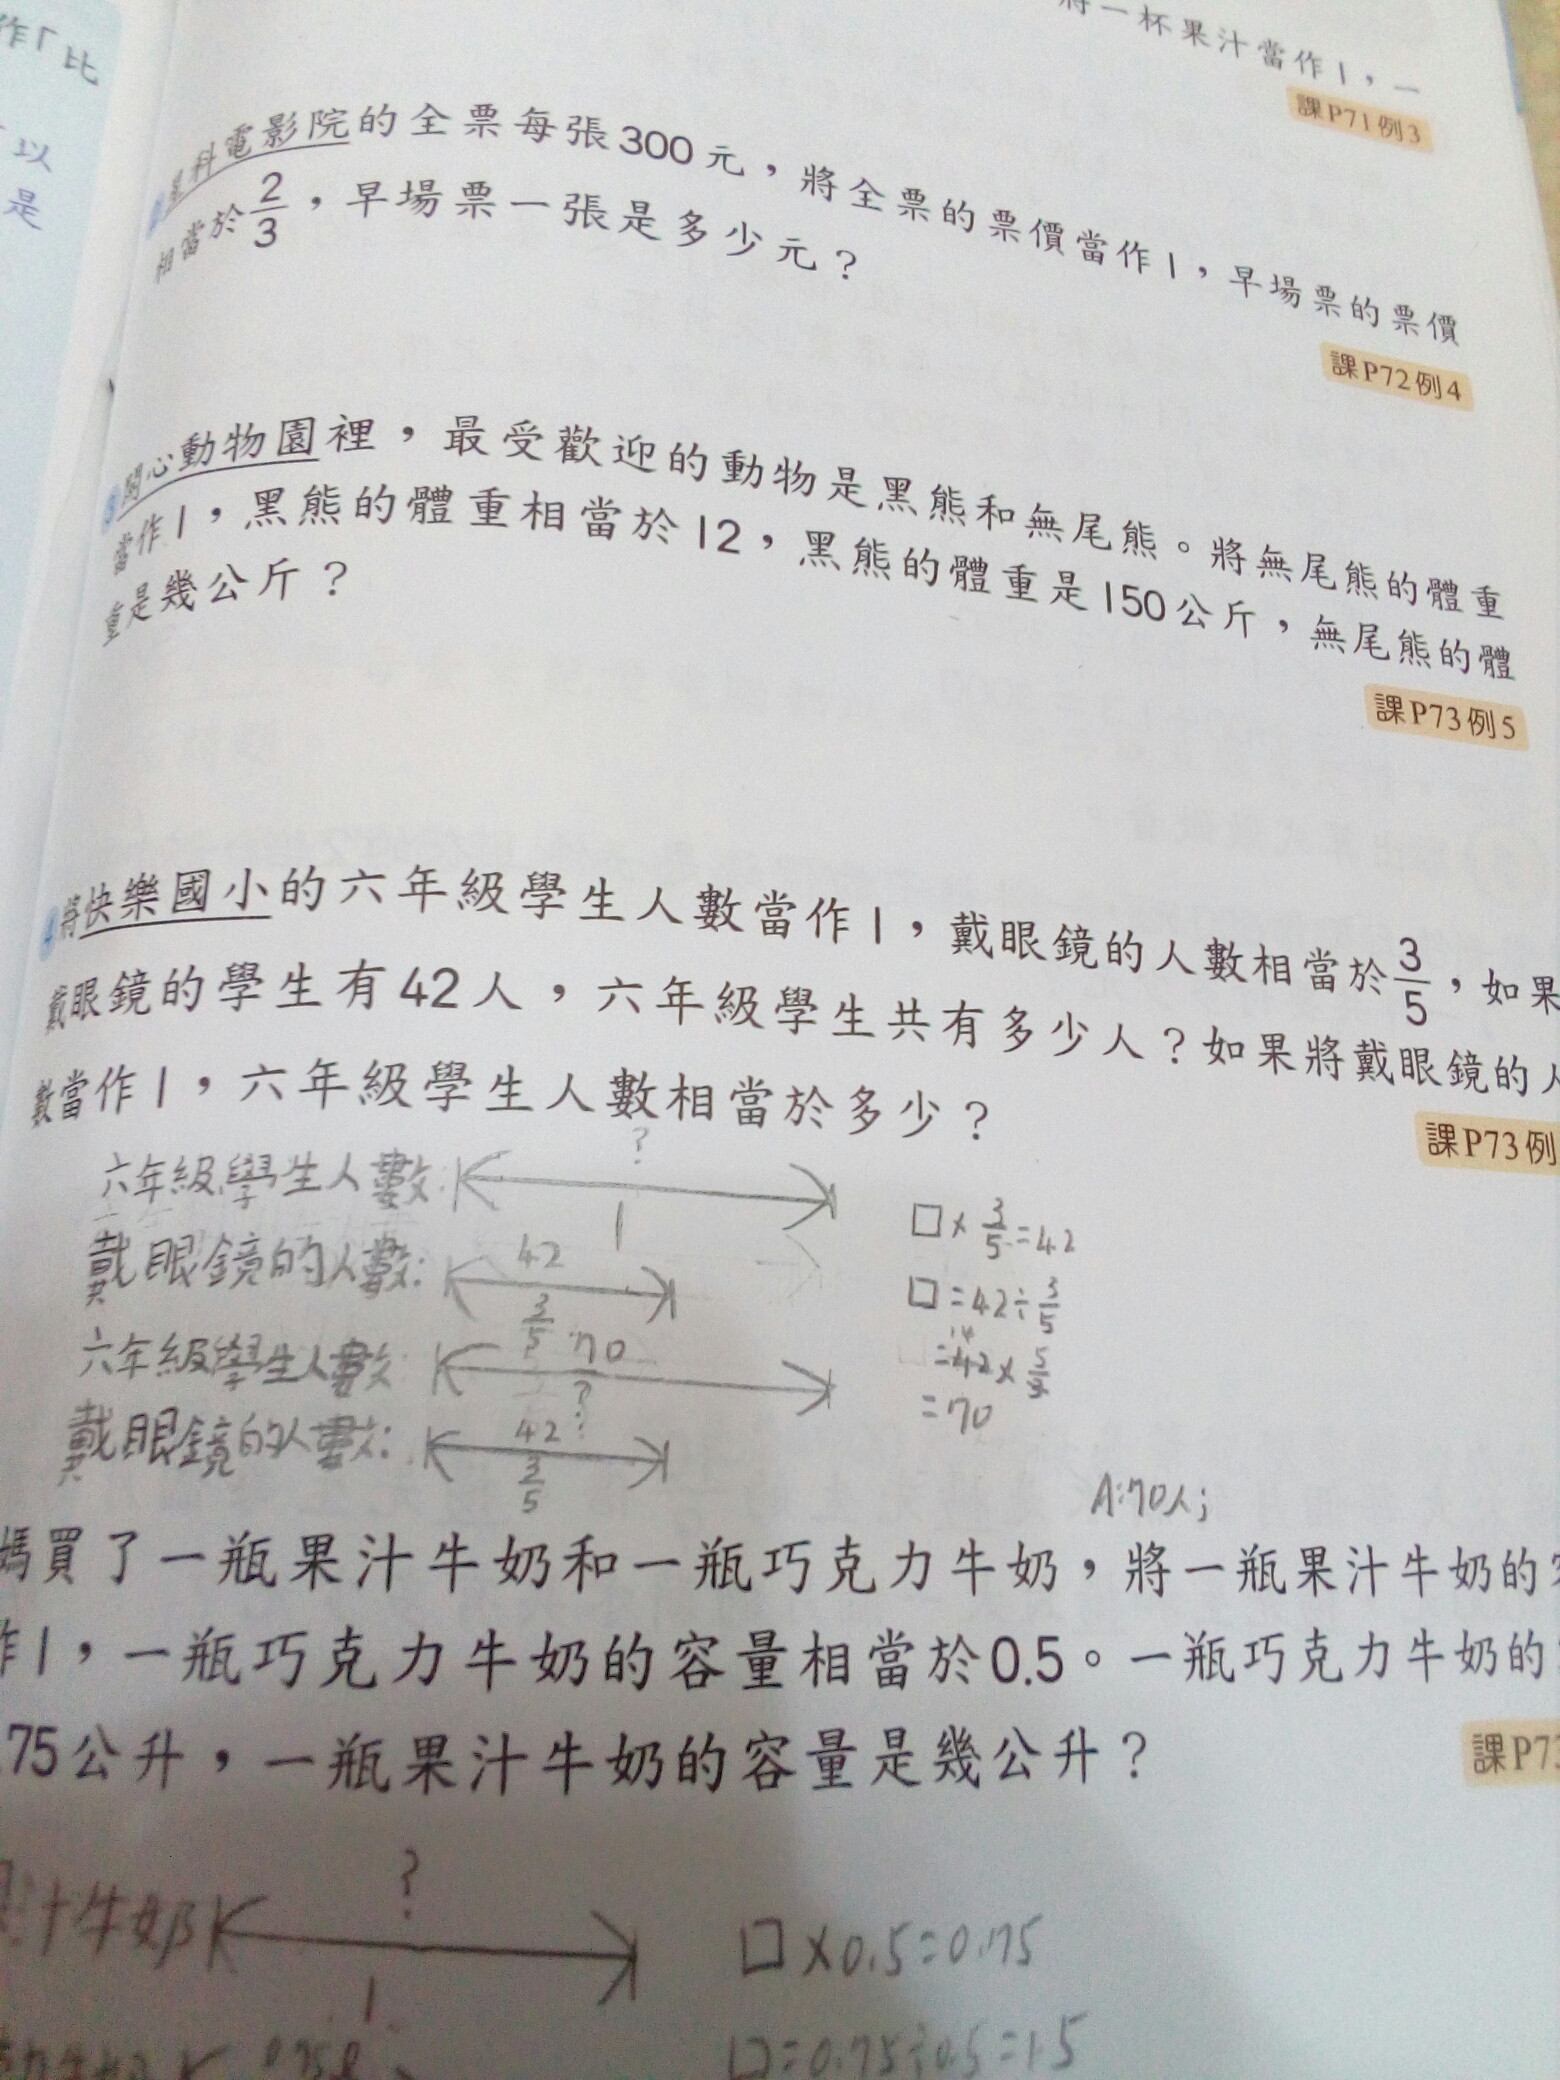 作「比
「以
是
將一杯果汁當作1，一
課P71例3
星科電影院的全票每張300元，將全票的票價當作1，早場票的票價
相當於2/3，早場票一張是多少元？
課P72例4
3 開心動物園裡，最受歡迎的動物是黑熊和無尾熊。將無尾熊的體重
當作1，黑熊的體重相當於12，黑熊的體重是150公斤，無尾熊的體
重是幾公斤？
課P73例5
4 將快樂國小的六年級學生人數當作1，戴眼鏡的人數相當於3/5，如果
戴眼鏡的學生有42人，六年級學生共有多少人？如果將戴眼鏡的人
數當作1，六年級學生人數相當於多少？
課P73例
六年級學生人數: ?
1
戴眼鏡的人數: 42
3/5
六年級學生人數: 70
?
戴眼鏡的人數: 42
3/5
□×3/5=42
□=42÷3/5
14
=42×5/3
=70
A:70人;
媽買了一瓶果汁牛奶和一瓶巧克力牛奶，將一瓶果汁牛奶的容
作1，一瓶巧克力牛奶的容量相當於0.5。一瓶巧克力牛奶的
.75公升，一瓶果汁牛奶的容量是幾公升？
課P73
汁牛奶 ?
1
□×0.5=0.75
□=0.75÷0.5=1.5